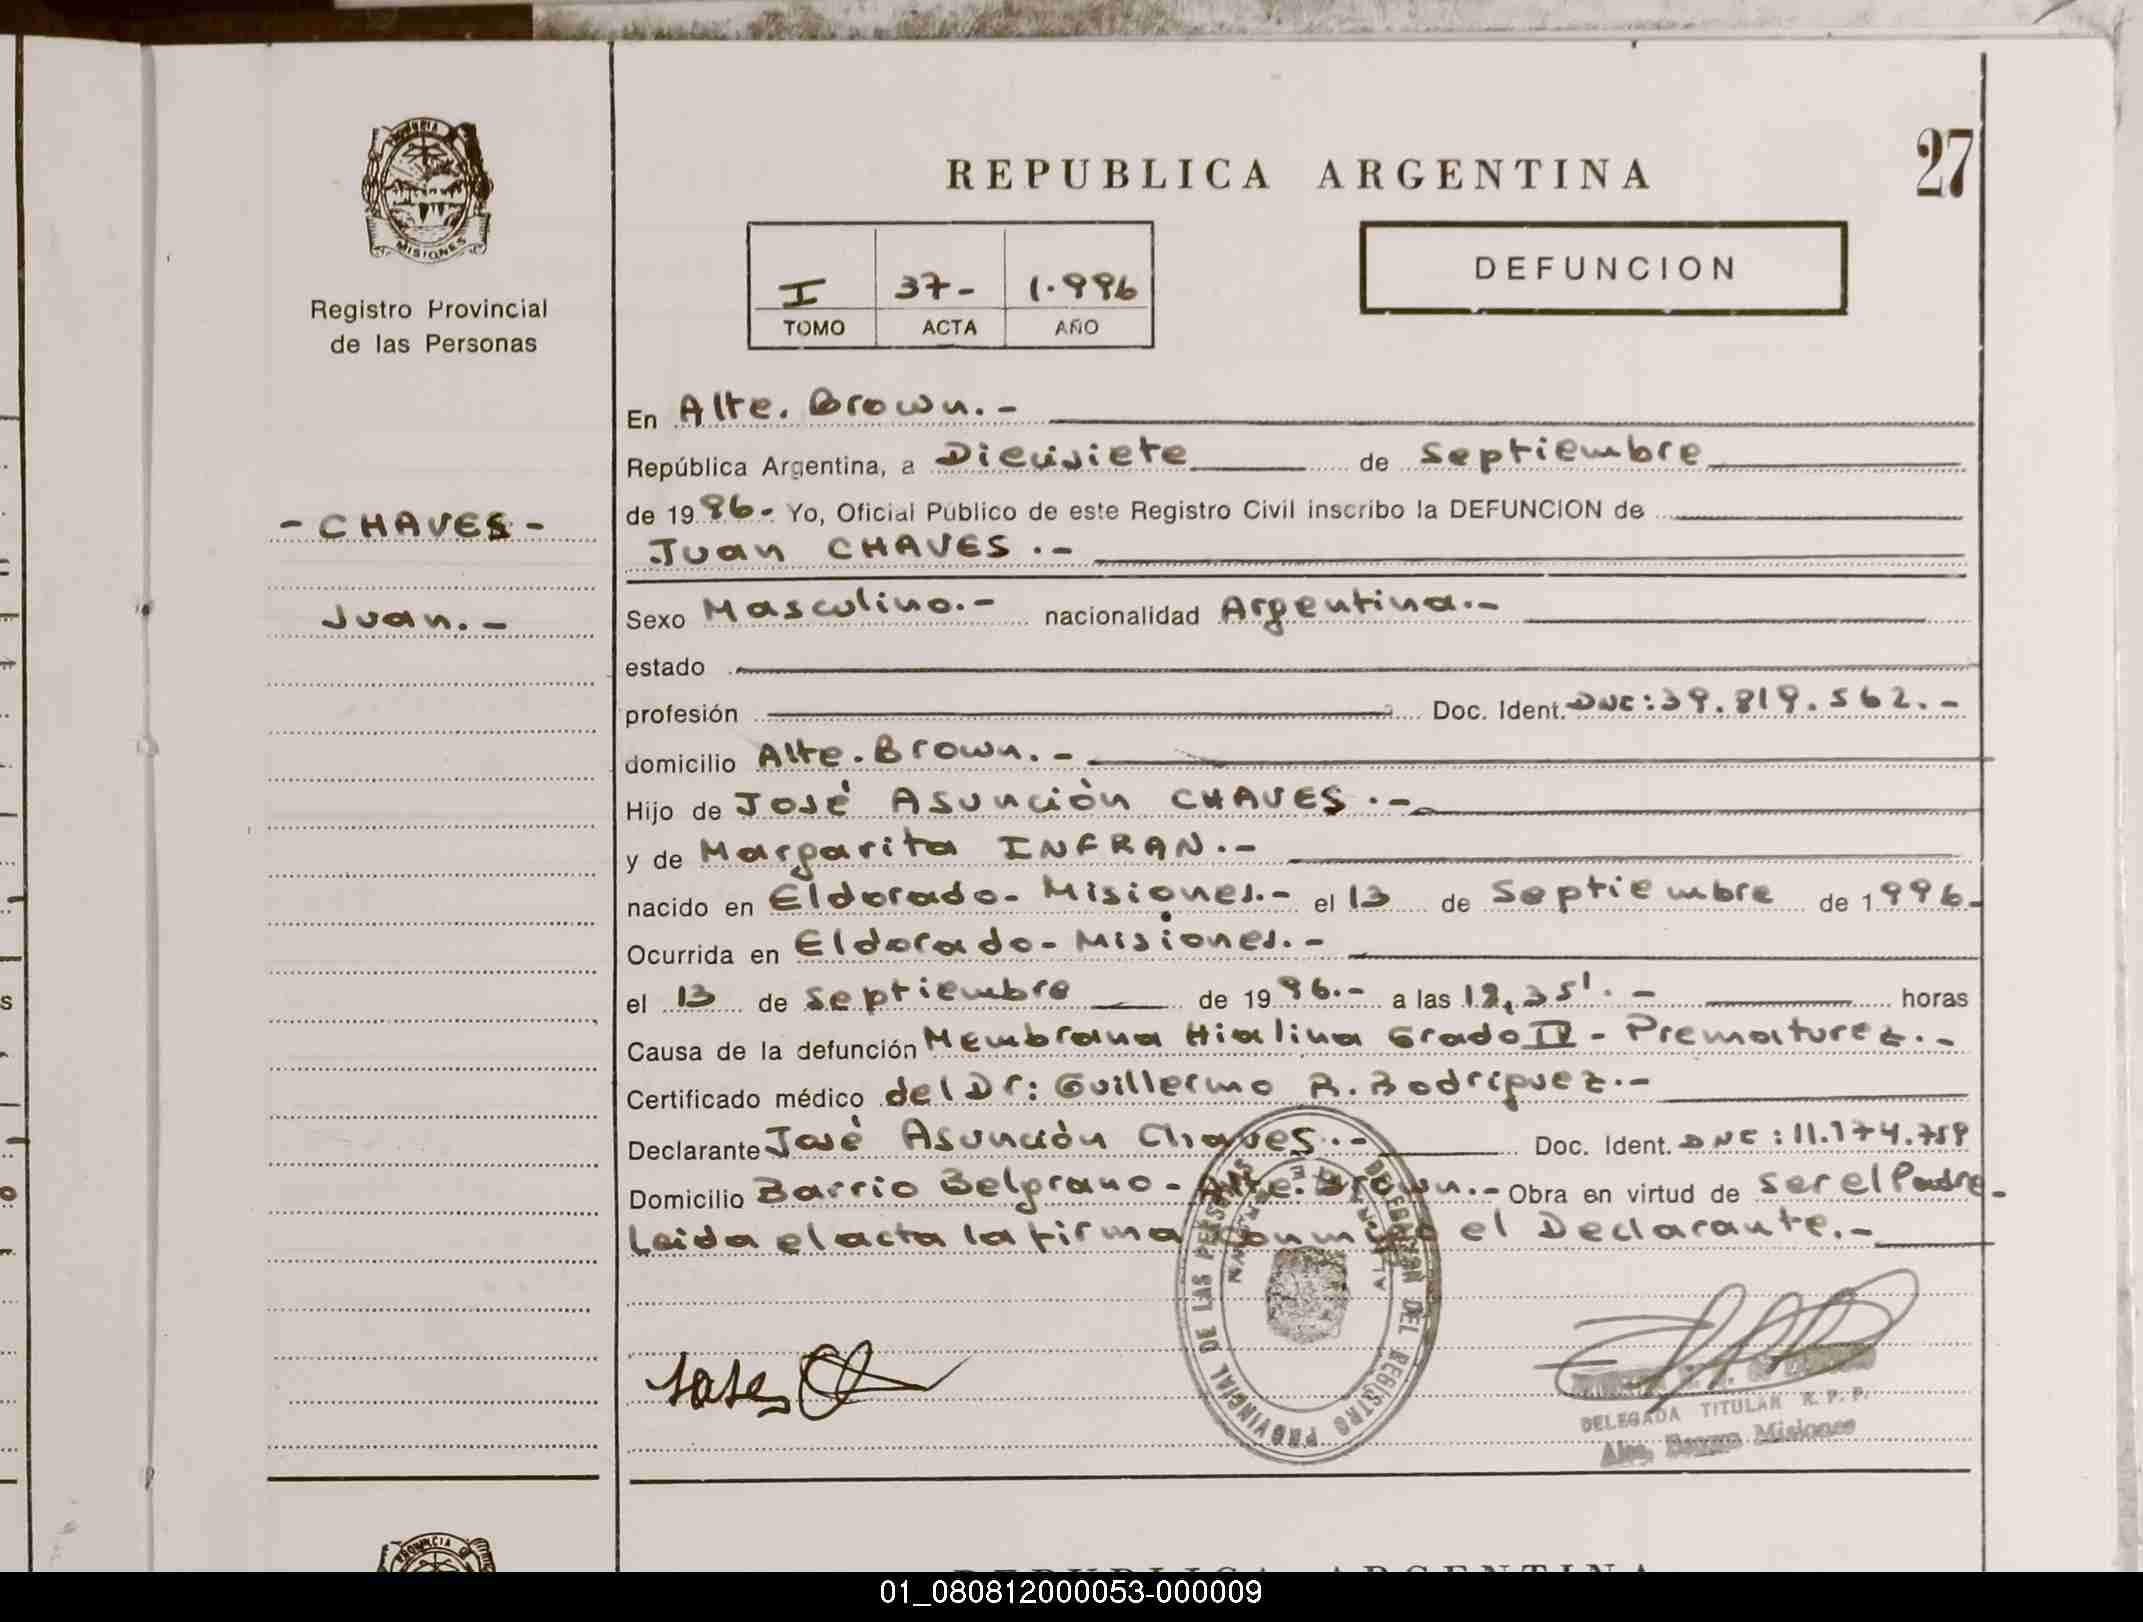 REPUBLICA ARGENTINA
27
PROVINCIA
MISIONES
Registro Provincial
de las Personas
I 37- 1.996
TOMO ACTA AÑO
DEFUNCION
- CHAVES -
Juan.-
En Alte. Brown.-
República Argentina, a Diecisiete de Septiembre
de 1996- Yo, Oficial Público de este Registro Civil inscribo la DEFUNCION de
Juan CHAVES.-
Sexo Masculino.- nacionalidad Argentina.-
estado
profesión Doc. Ident. DNI: 39.819.562.-
domicilio Alte. Brown.-
Hijo de José Asunción CHAVES.-
y de Margarita INFRAN.-
nacido en Eldorado- Misiones.- el 13 de Septiembre de 1996-
Ocurrida en Eldorado- Misiones.-
el 13 de Septiembre de 1996.- a las 12,35'.- horas
Causa de la defunción Membrana Hialina Grado IV - Prematurez.-
Certificado médico del Dr: Guillermo R. Rodríguez.-
Declarante José Asunción Chaves.- Doc. Ident. DNI: 11.174.759
Domicilio Barrio Belgrano - Alte. Brown.- Obra en virtud de ser el Padre-
Leida el acta la firma conmigo el Declarante.-
DELEGACIÓN DEL REGISTRO PROVINCIAL DE LAS PERSONAS
DELEGADA TITULAR R. P. P.
Alte. Brown Misiones
REPUBLICA ARGENTINA
01_080812000053-000009